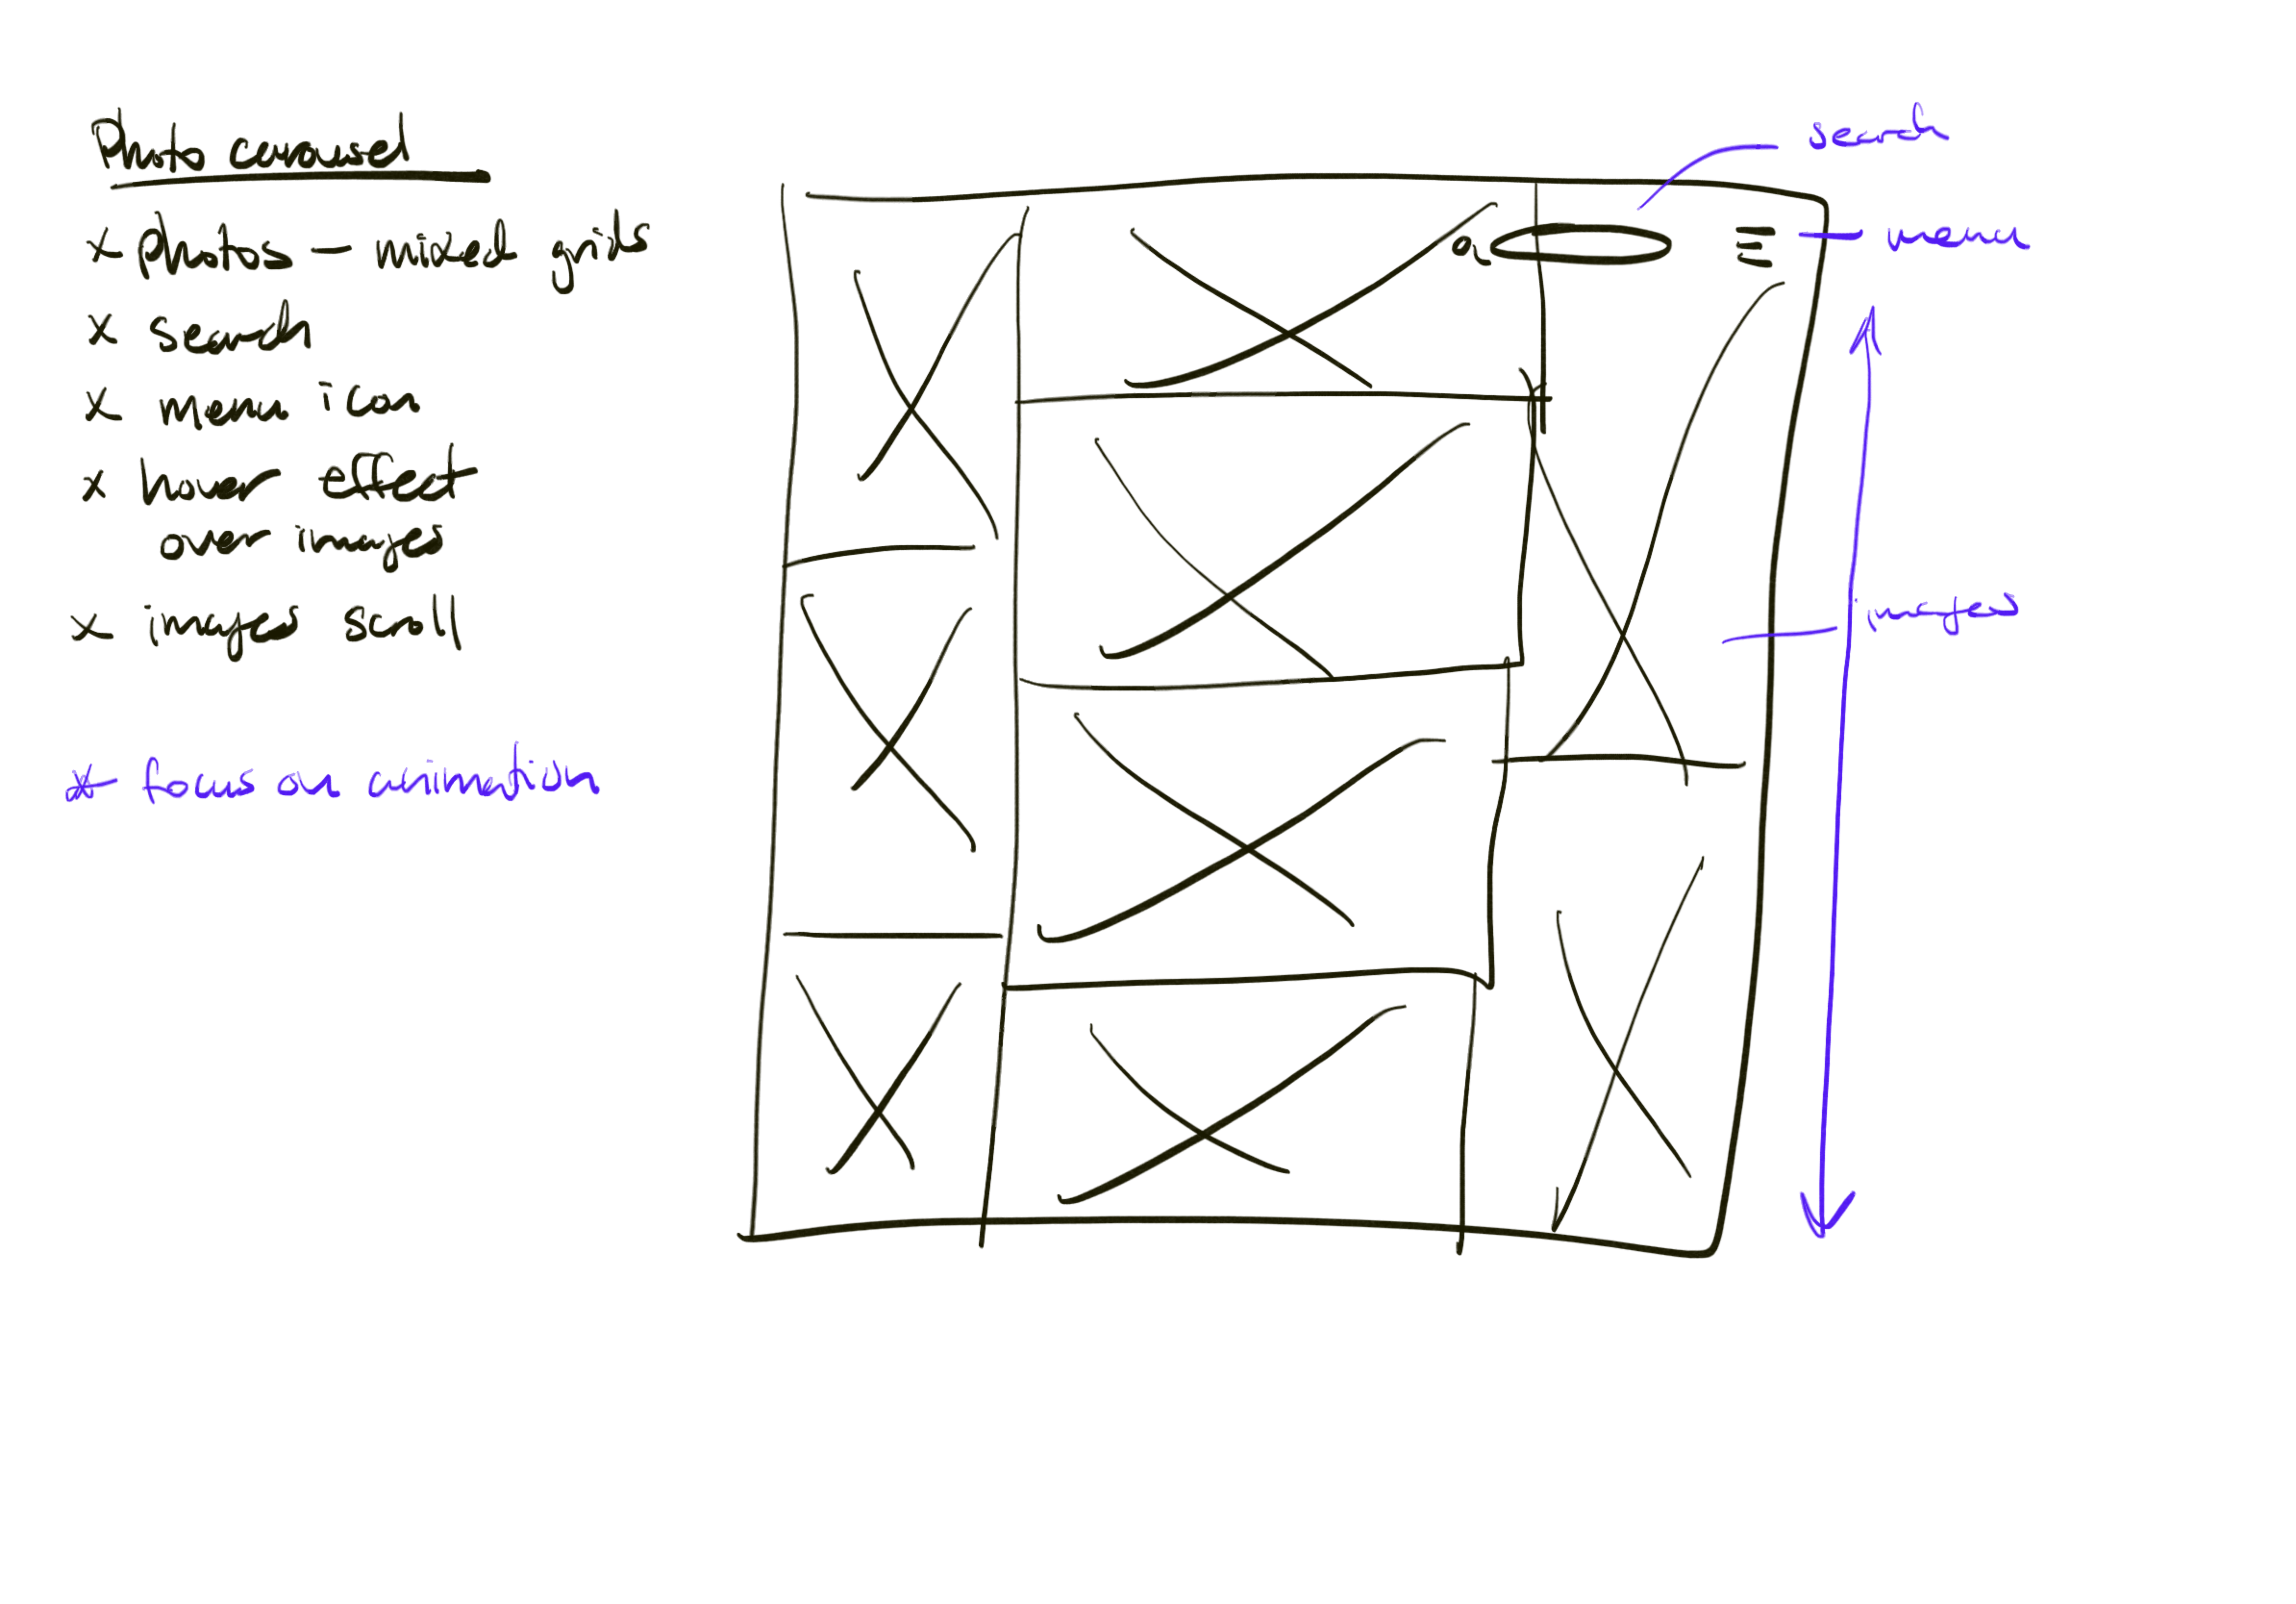 Photo carousel
x Photos — mixed grids
x search
x menu icon
x hover effect
over images
x images scroll
* focus on animation
search
menu
images